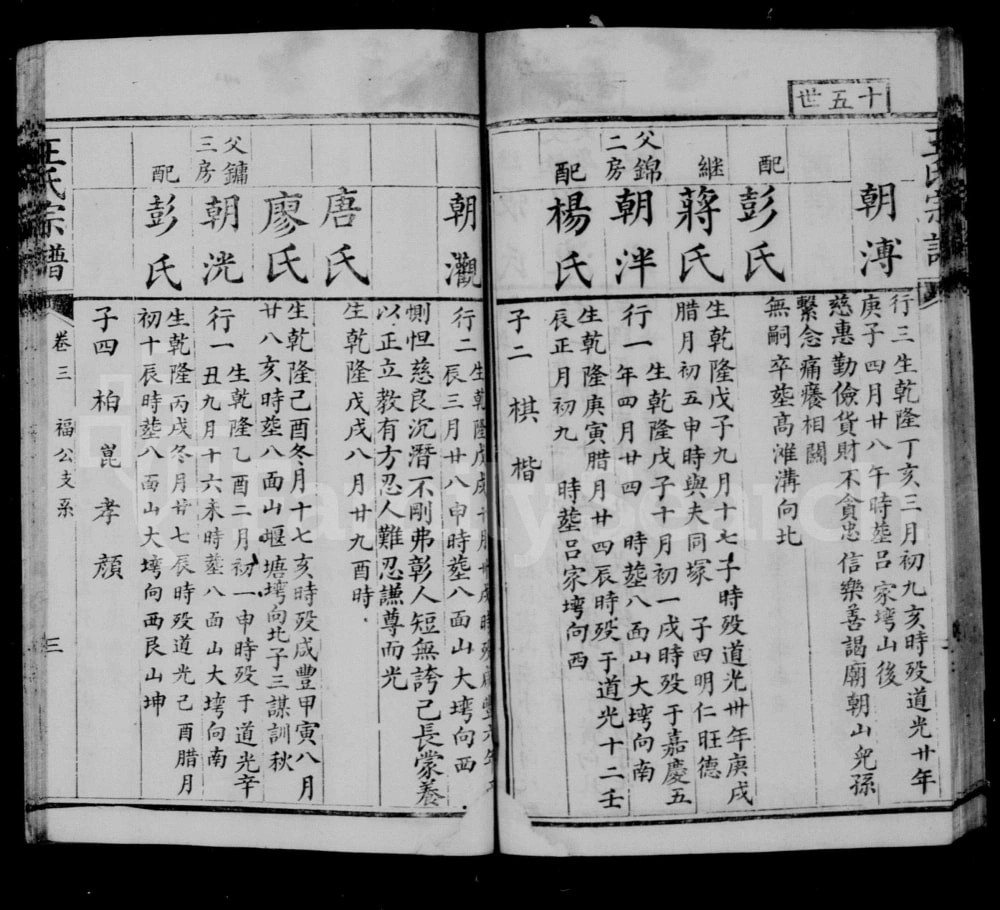 十五世
王氏宗譜
朝溥
行三生乾隆丁亥三月初九亥時殁道光廿年
庚子四月廿八午時塟呂家塆山後
慈惠勤儉貨財不貪忠信樂善謁廟朝山兒孫
繫念痛癢相關
無嗣卒塟高滩溝向北
配
彭氏
生乾隆戊子九月十七子時殁道光卅年庚戌
腊月初五申時與夫同塚 子四明仁旺德
継
蔣氏
父錦
二房
朝泮
行一 生乾隆戊子十月初一戌時殁于嘉慶五
年四月廿四 時塟八面山大塆向南
配
楊氏
生乾隆庚寅腊月廿四辰時殁于道光十二壬
辰正月初九 時塟呂家塆向西
子二 棋 楷
朝灝
行二 生乾隆
辰三月廿八申時塟八面山大塆向西
惻怛慈良沉潛不剛弗彰人短無誇己長蒙养
以正立教有方忍人難忍謙尊而光
唐氏
生乾隆戊戌八月廿九酉時
廖氏
生乾隆己酉冬月十七亥時殁咸豐甲寅八月
廿八亥時塟八面山堰塘塆向北子三謀訓秋
父鏞
三房
朝洸
行一 生乾隆乙酉二月初一申時殁于道光辛
丑九月十六未時塟八面山大塆向南
配
彭氏
生乾隆丙戌冬月廿七辰時殁道光己酉腊月
初十辰時塟八面山大塆向西艮山坤
子四 柏 崑 孝 顔
王氏宗譜
卷三 福公支系
三